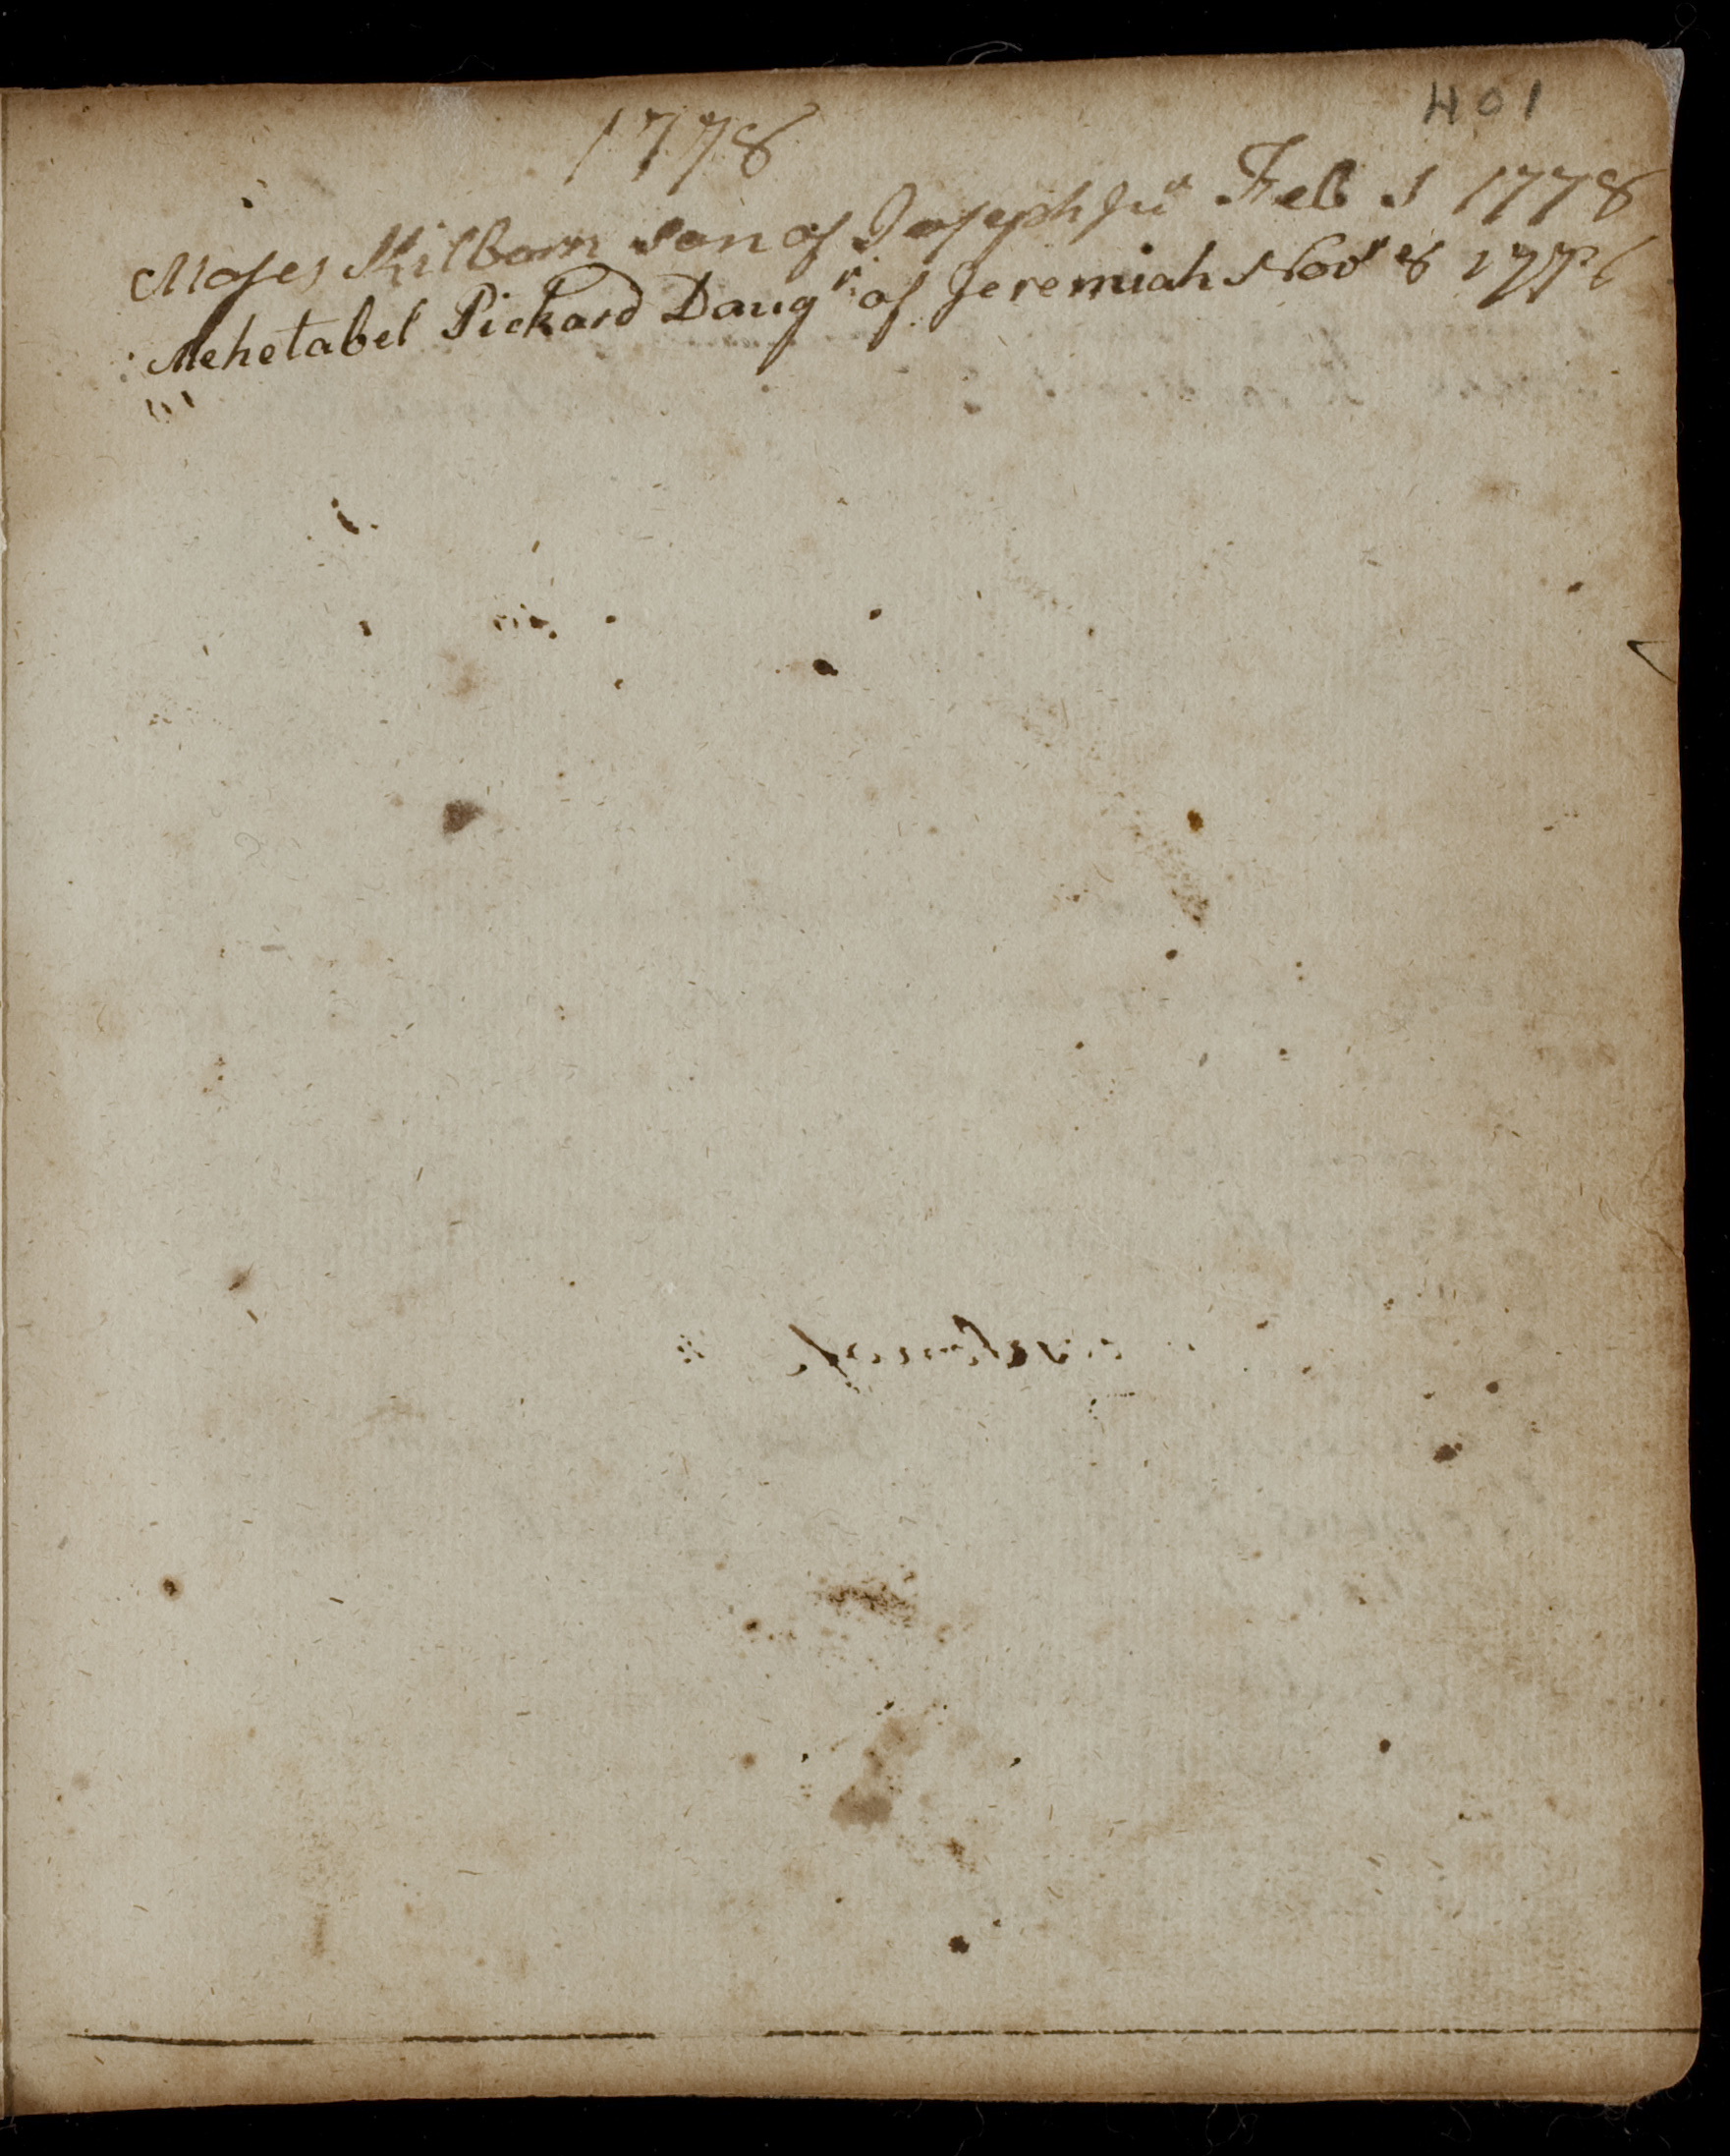 401
1778
Moses Kilborn son of Joseph Jur Feb 1 1778
Mehetabel Pickard Daugr. of Jeremiah Novr 8 177